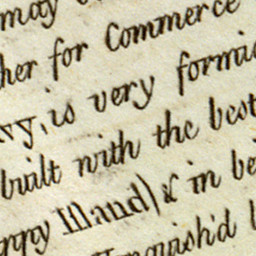 may
her for Commerce
is very formi
built with the best
Iland) & in be
nguish'd